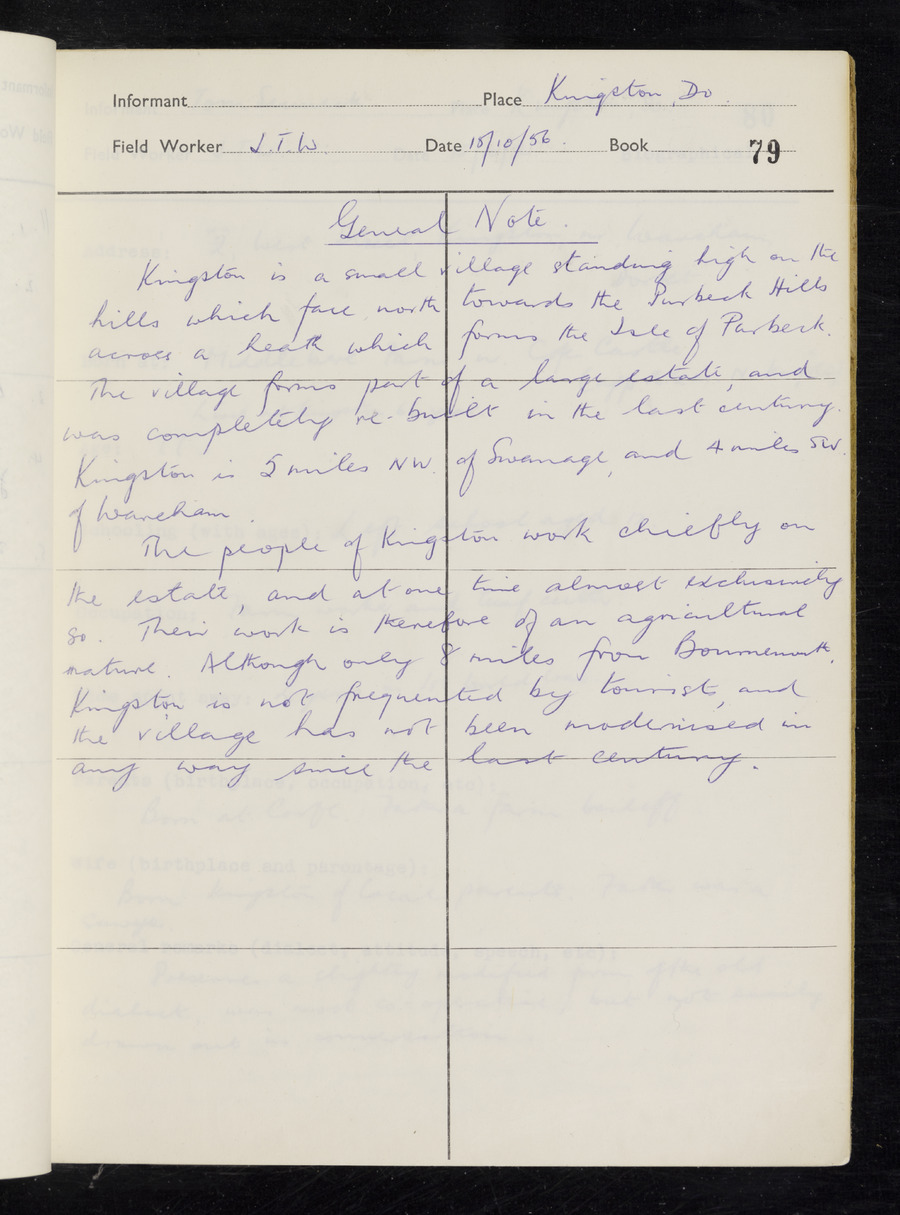 Informant Place Kingston, Do.
Field Worker J.T.W. Date 15/10/56. Book 79
General Note.
Kingston is a small village standing high on the
hills which face north towards the Purbeck Hills
across a heath which forms the Isle of Purbeck.
The village forms part of a large estate, and
was completely re-built in the last century.
Kingston is 5 miles NW. of Swanage, and 4 miles SW.
of Wareham.
The people of Kingston work chiefly on
the estate, and at one time almost exclusively
so. Their work is therefore of an agricultural
nature. Although only 8 miles from Bournemouth,
Kingston is not frequented by tourists, and
the village has not been modernised in
any way since the last century.